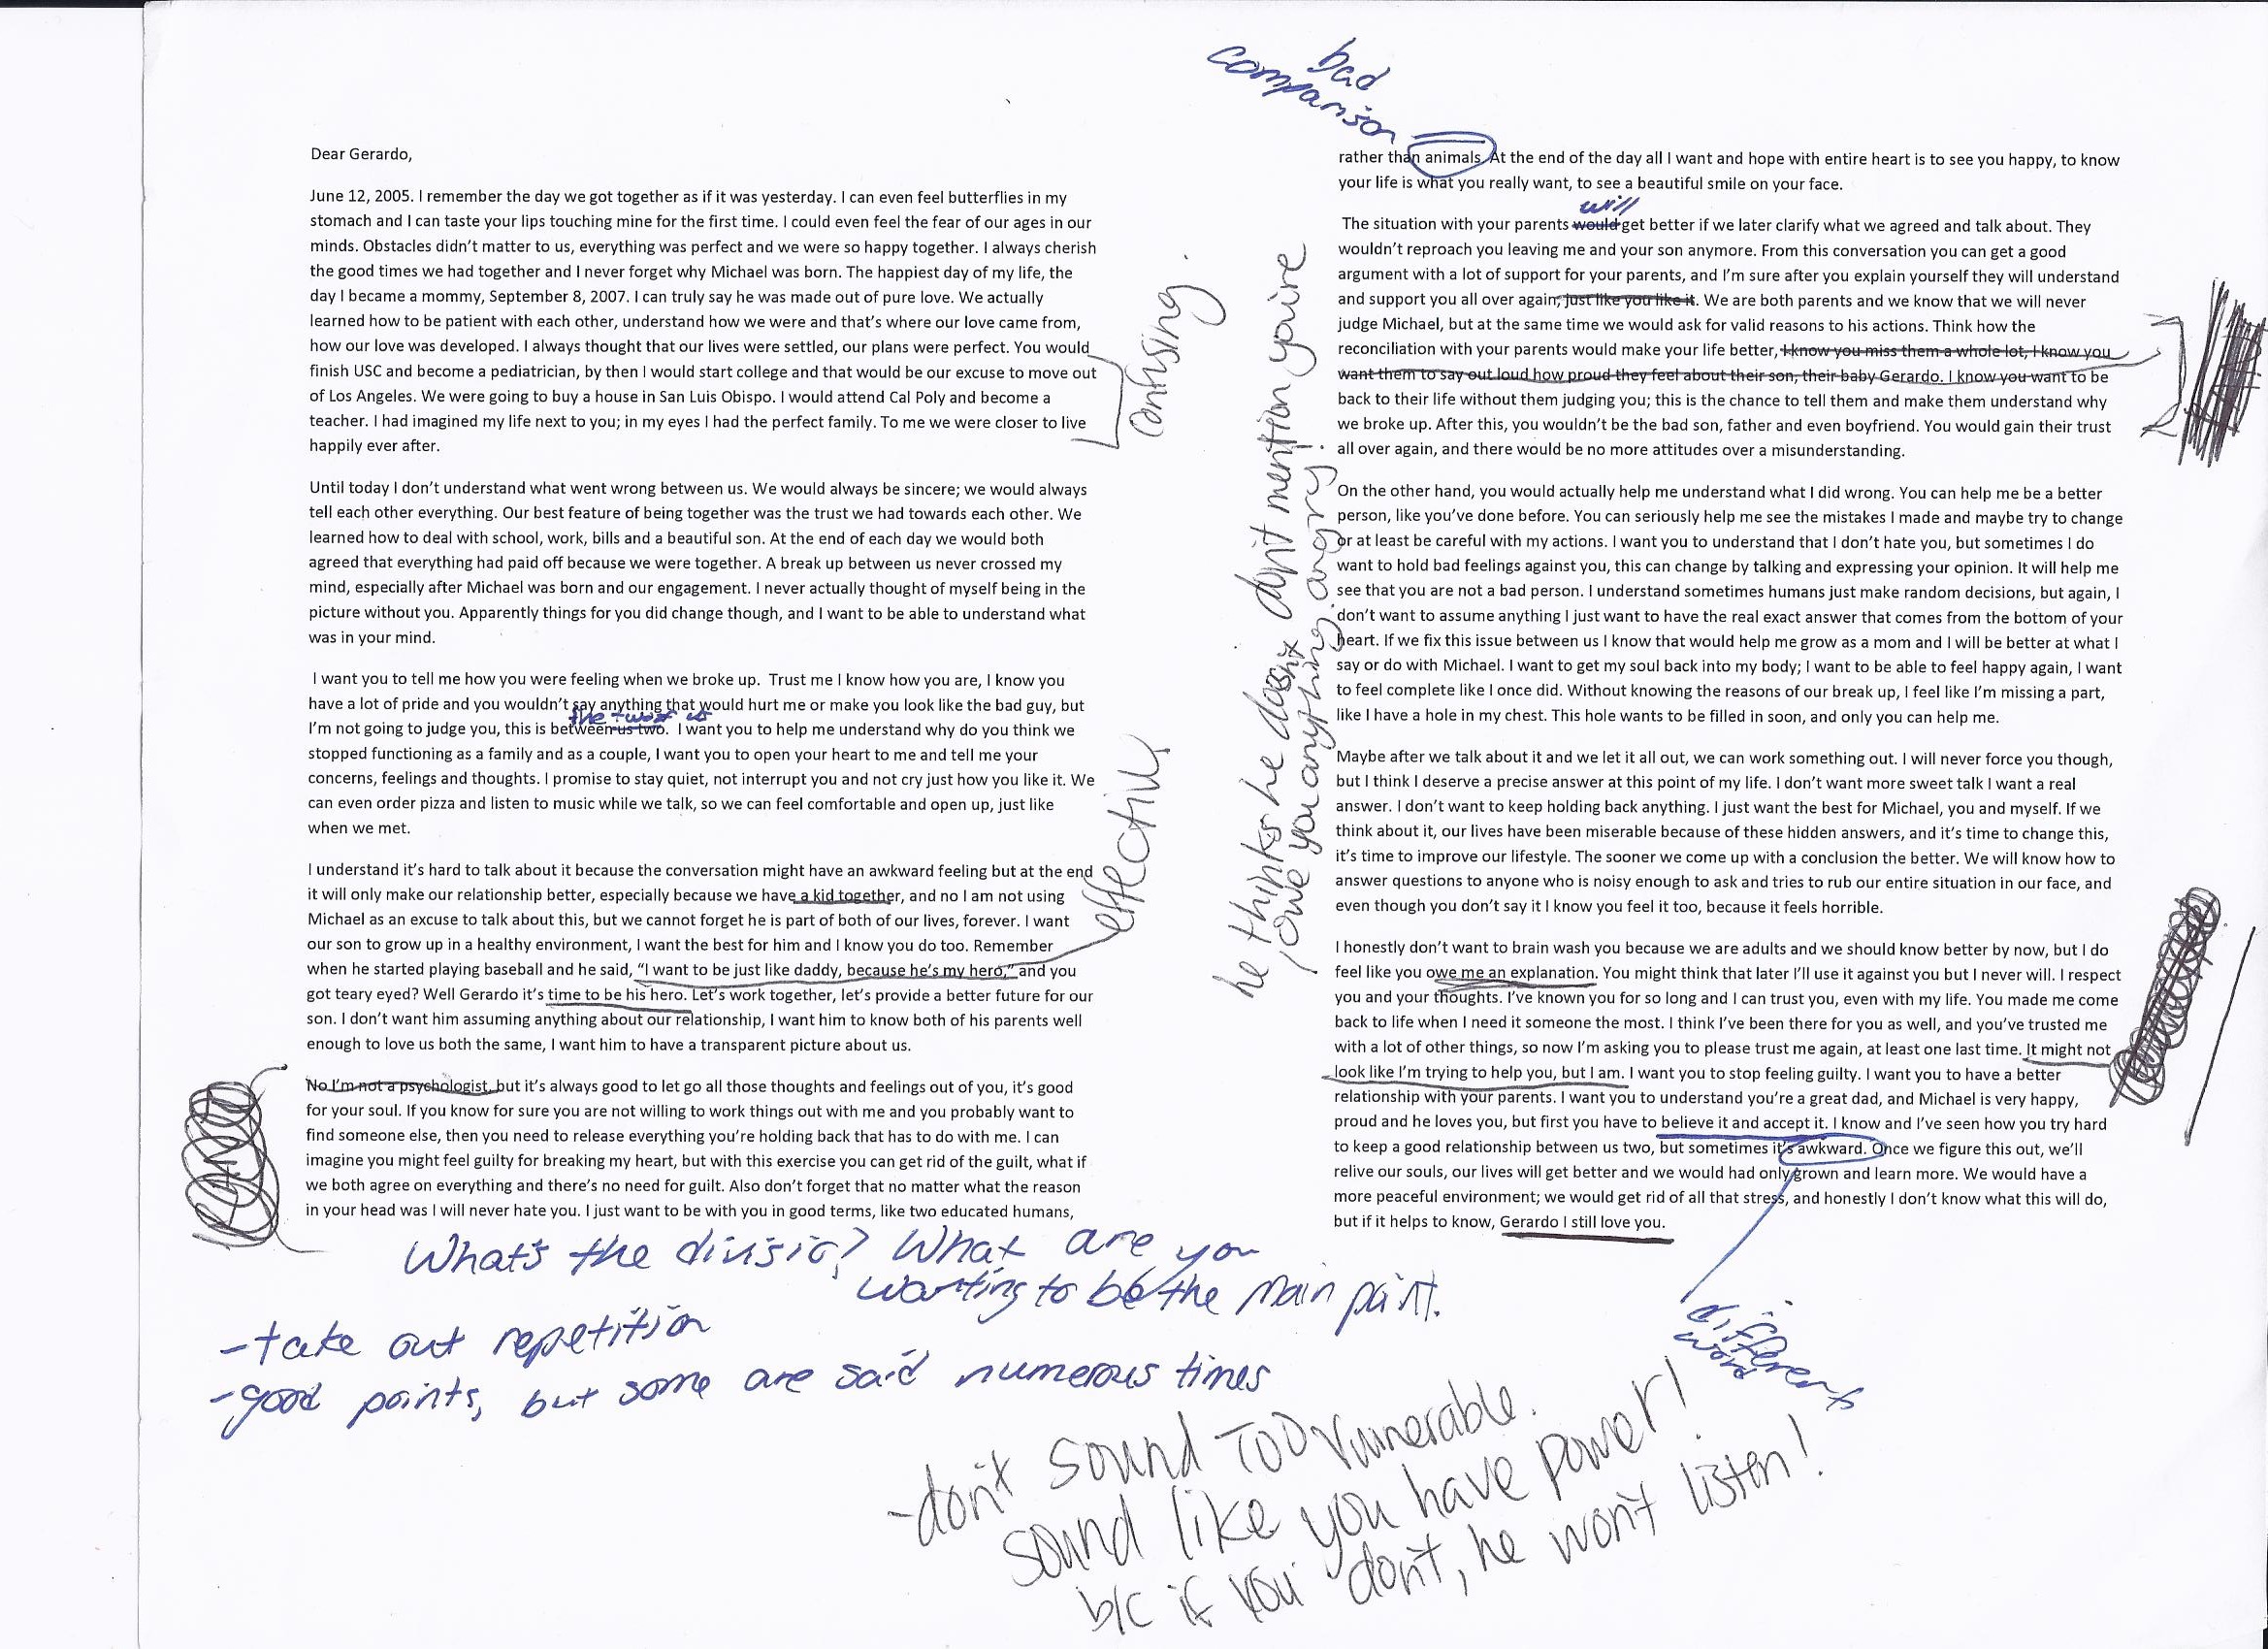 Dear Gerardo,
June 12, 2005. I remember the day we got together as if it was yesterday. I can even feel butterflies in my
stomach and I can taste your lips touching mine for the first time. I could even feel the fear of our ages in our
minds. Obstacles didn't matter to us, everything was perfect and we were so happy together. I always cherish
the good times we had together and I never forget why Michael was born. The happiest day of my life, the
day I became a mommy, September 8, 2007. I can truly say he was made out of pure love. We actually
learned how to be patient with each other, understand how we were and that's where our love came from,
how our love was developed. I always thought that our lives were settled, our plans were perfect. You would
finish USC and become a pediatrician, by then I would start college and that would be our excuse to move out
of Los Angeles. We were going to buy a house in San Luis Obispo. I would attend Cal Poly and become a
teacher. I had imagined my life next to you; in my eyes I had the perfect family. To me we were closer to live
happily ever after.
confusing.
Until today I don't understand what went wrong between us. We would always be sincere; we would always
tell each other everything. Our best feature of being together was the trust we had towards each other. We
learned how to deal with school, work, bills and a beautiful son. At the end of each day we would both
agreed that everything had paid off because we were together. A break up between us never crossed my
mind, especially after Michael was born and our engagement. I never actually thought of myself being in the
picture without you. Apparently things for you did change though, and I want to be able to understand what
was in your mind.
I want you to tell me how you were feeling when we broke up.  Trust me I know how you are, I know you
have a lot of pride and you wouldn't say anything that would hurt me or make you look like the bad guy, but
the two of us
I'm not going to judge you, this is between us two.  I want you to help me understand why do you think we
stopped functioning as a family and as a couple, I want you to open your heart to me and tell me your
concerns, feelings and thoughts. I promise to stay quiet, not interrupt you and not cry just how you like it. We
can even order pizza and listen to music while we talk, so we can feel comfortable and open up, just like
when we met.
I understand it's hard to talk about it because the conversation might have an awkward feeling but at the end
it will only make our relationship better, especially because we have a kid together, and no I am not using
Michael as an excuse to talk about this, but we cannot forget he is part of both of our lives, forever. I want
our son to grow up in a healthy environment, I want the best for him and I know you do too. Remember
when he started playing baseball and he said, "I want to be just like daddy, because he's my hero," and you
got teary eyed? Well Gerardo it's time to be his hero. Let's work together, let's provide a better future for our
son. I don't want him assuming anything about our relationship, I want him to know both of his parents well
enough to love us both the same, I want him to have a transparent picture about us.
effective
No I'm not a psychologist, but it's always good to let go all those thoughts and feelings out of you, it's good
for your soul. If you know for sure you are not willing to work things out with me and you probably want to
find someone else, then you need to release everything you're holding back that has to do with me. I can
imagine you might feel guilty for breaking my heart, but with this exercise you can get rid of the guilt, what if
we both agree on everything and there's no need for guilt. Also don't forget that no matter what the reason
in your head was I will never hate you. I just want to be with you in good terms, like two educated humans,
What's the divisio? What are you
wanting to be the main point.
-take out repetition
-good points, but some are said numerous times
bad
comparison
rather than animals. At the end of the day all I want and hope with entire heart is to see you happy, to know
your life is what you really want, to see a beautiful smile on your face.
will
The situation with your parents would get better if we later clarify what we agreed and talk about. They
wouldn't reproach you leaving me and your son anymore. From this conversation you can get a good
argument with a lot of support for your parents, and I'm sure after you explain yourself they will understand
and support you all over again, just like you like it. We are both parents and we know that we will never
judge Michael, but at the same time we would ask for valid reasons to his actions. Think how the
reconciliation with your parents would make your life better, I know you miss them a whole lot, I know you
want them to say out loud how proud they feel about their son, their baby Gerardo. I know you want to be
back to their life without them judging you; this is the chance to tell them and make them understand why
we broke up. After this, you wouldn't be the bad son, father and even boyfriend. You would gain their trust
all over again, and there would be no more attitudes over a misunderstanding.
he thinks he doesn't owe you anything. don't mention you're angry!
On the other hand, you would actually help me understand what I did wrong. You can help me be a better
person, like you've done before. You can seriously help me see the mistakes I made and maybe try to change
or at least be careful with my actions. I want you to understand that I don't hate you, but sometimes I do
want to hold bad feelings against you, this can change by talking and expressing your opinion. It will help me
see that you are not a bad person. I understand sometimes humans just make random decisions, but again, I
don't want to assume anything I just want to have the real exact answer that comes from the bottom of your
heart. If we fix this issue between us I know that would help me grow as a mom and I will be better at what I
say or do with Michael. I want to get my soul back into my body; I want to be able to feel happy again, I want
to feel complete like I once did. Without knowing the reasons of our break up, I feel like I'm missing a part,
like I have a hole in my chest. This hole wants to be filled in soon, and only you can help me.
Maybe after we talk about it and we let it all out, we can work something out. I will never force you though,
but I think I deserve a precise answer at this point of my life. I don't want more sweet talk I want a real
answer. I don't want to keep holding back anything. I just want the best for Michael, you and myself. If we
think about it, our lives have been miserable because of these hidden answers, and it's time to change this,
it's time to improve our lifestyle. The sooner we come up with a conclusion the better. We will know how to
answer questions to anyone who is noisy enough to ask and tries to rub our entire situation in our face, and
even though you don't say it I know you feel it too, because it feels horrible.
I honestly don't want to brain wash you because we are adults and we should know better by now, but I do
feel like you owe me an explanation. You might think that later I'll use it against you but I never will. I respect
you and your thoughts. I've known you for so long and I can trust you, even with my life. You made me come
back to life when I need it someone the most. I think I've been there for you as well, and you've trusted me
with a lot of other things, so now I'm asking you to please trust me again, at least one last time. It might not
look like I'm trying to help you, but I am. I want you to stop feeling guilty. I want you to have a better
relationship with your parents. I want you to understand you're a great dad, and Michael is very happy,
proud and he loves you, but first you have to believe it and accept it. I know and I've seen how you try hard
to keep a good relationship between us two, but sometimes it's awkward. Once we figure this out, we'll
relive our souls, our lives will get better and we would had only grown and learn more. We would have a
more peaceful environment; we would get rid of all that stress, and honestly I don't know what this will do,
but if it helps to know, Gerardo I still love you.
different
word
-don't sound TOO vulnerable.
sound like you have power!
b/c if you don't, he won't listen!